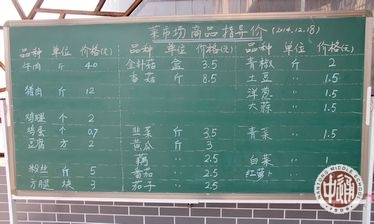 菜市场商品指导价 (2014.12.18)
品种 单位 价格(元) 品种 单位 价格(元) 品种 单位 价格(元)
牛肉 斤 40 金针菇 盒 3.5 青椒 斤 2
香菇 斤 8.5 土豆 〃 1.5
猪肉 斤 12 洋葱 〃 1.5
大蒜 〃 1.5
鸡腿 个 2
鸡蛋 个 0.7 韭菜 斤 3.5 青菜 〃 1.5
豆腐 方 2 黄瓜 斤 3
藕 〃 2.5 白菜 〃 1
粉丝 斤 5 番茄 〃 2.5 红萝卜 〃
方腿 块 3 茄子 〃 2.5